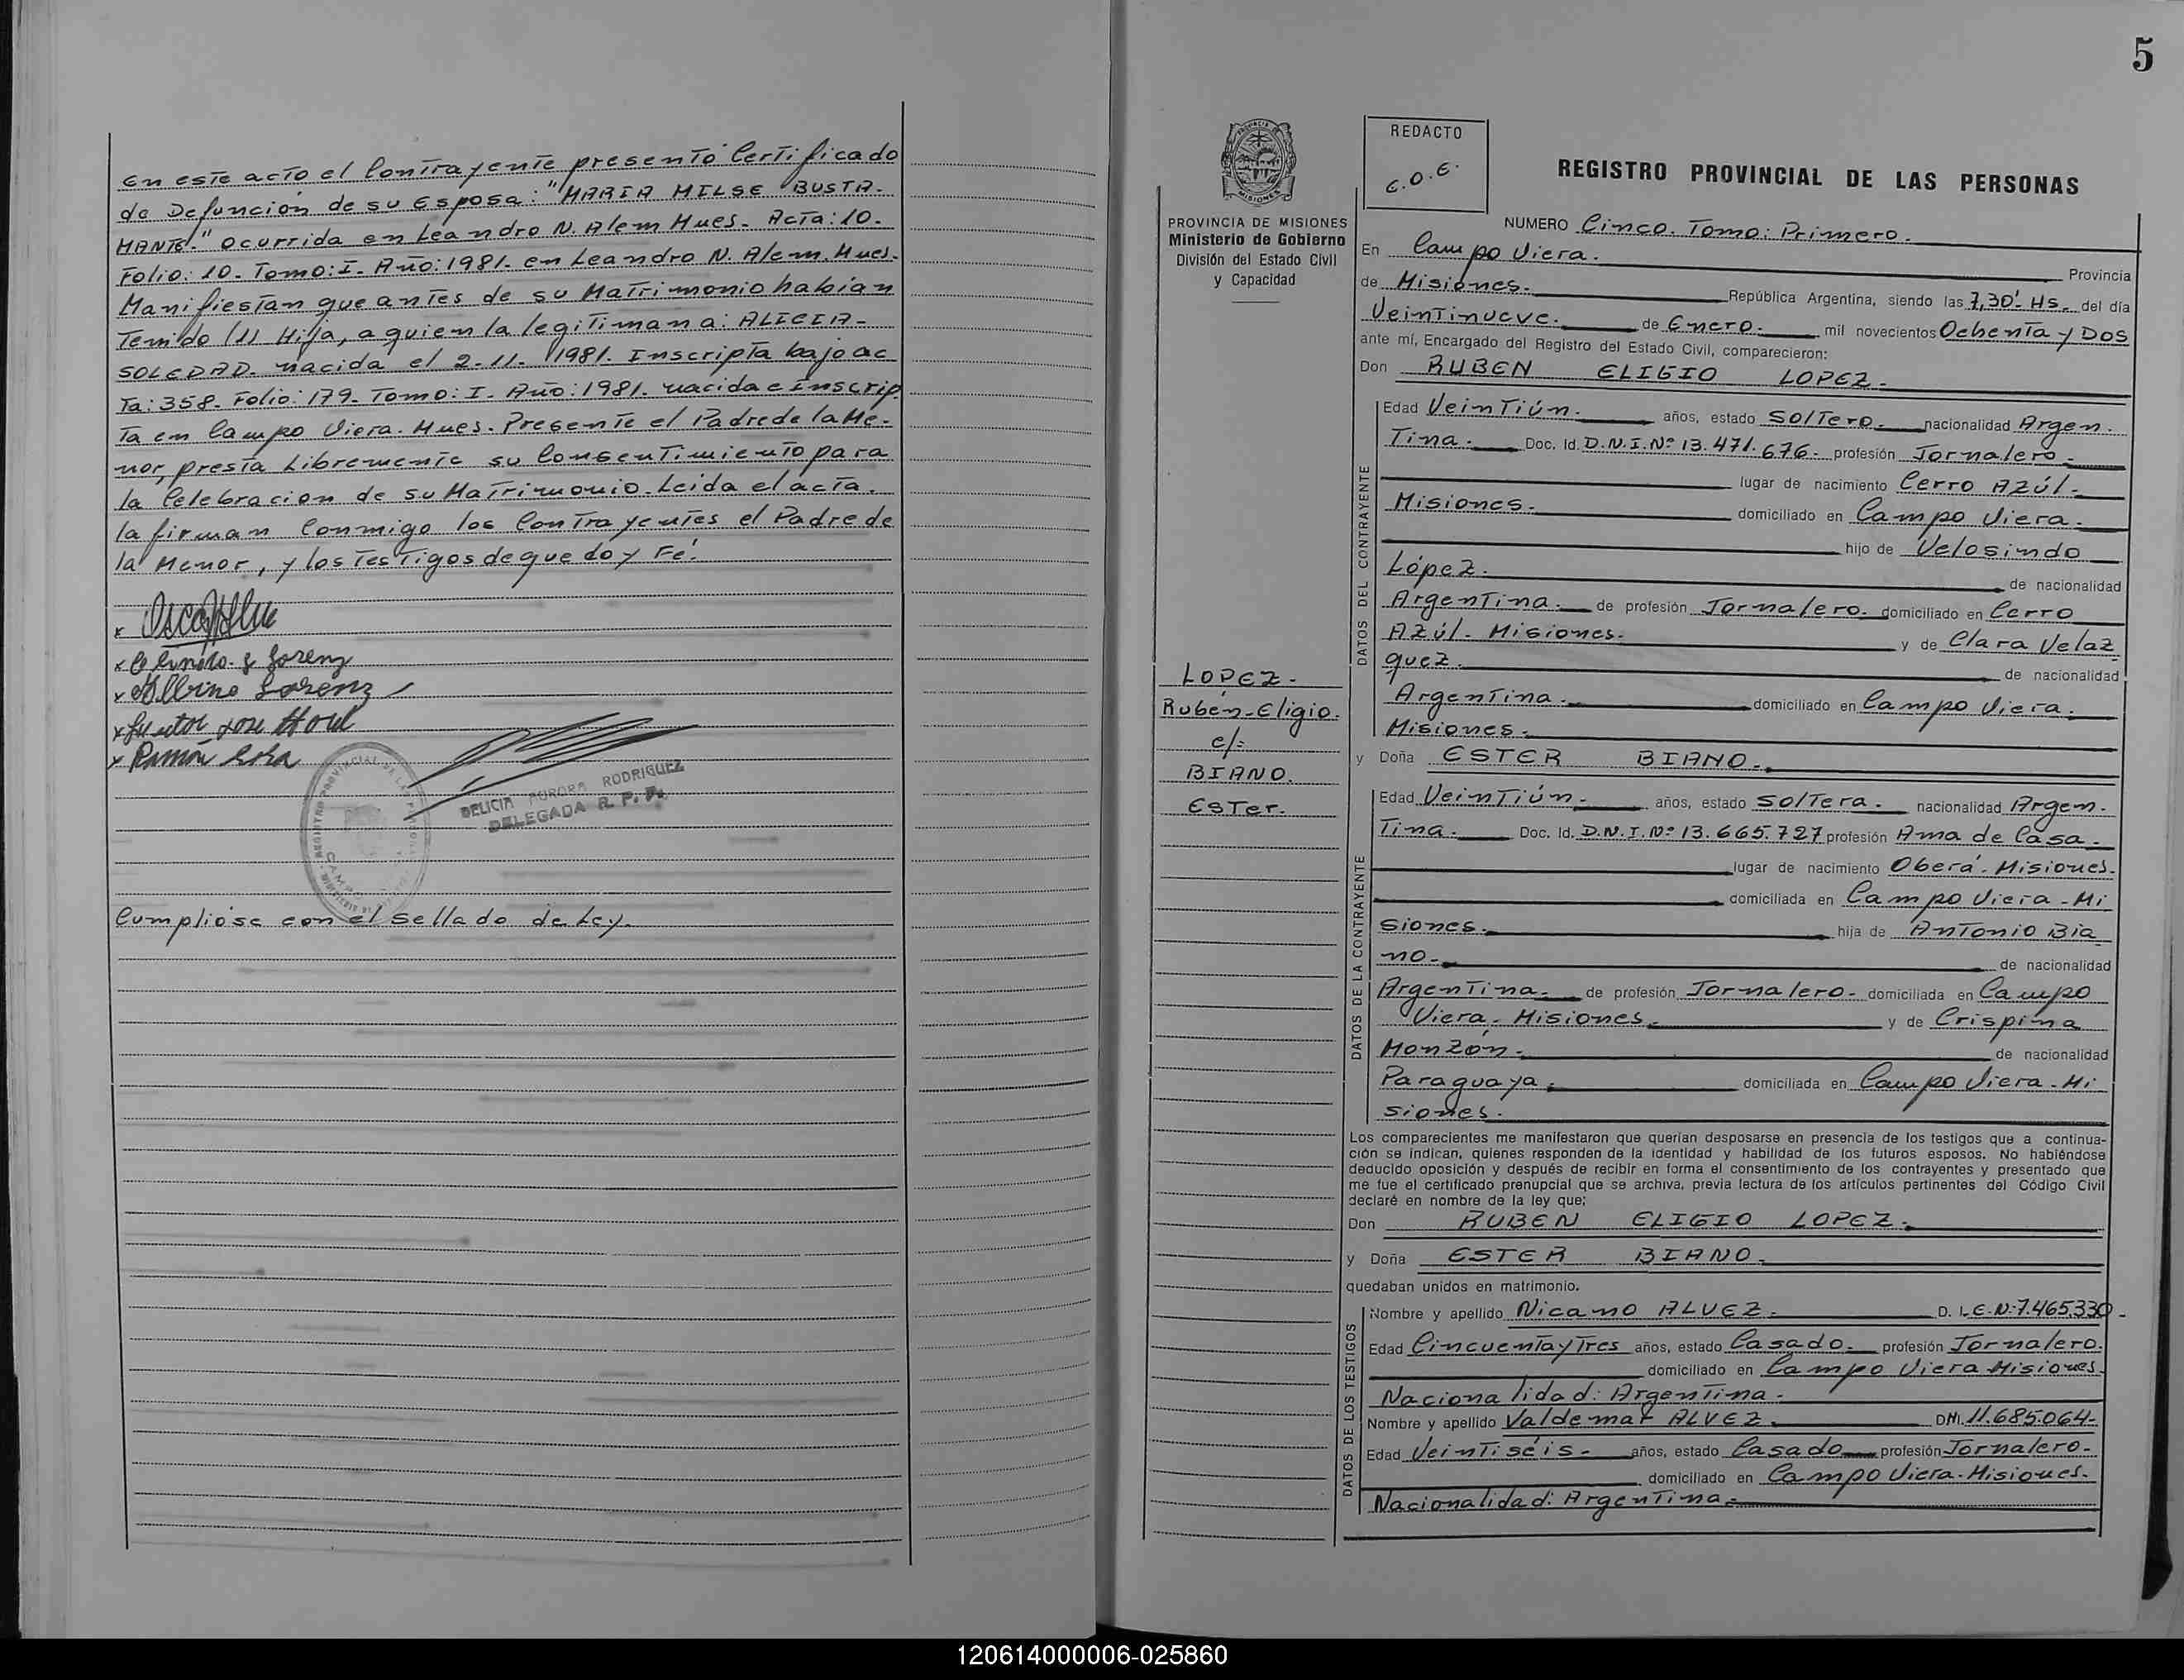 En este acto el Contrayente presentó Certificado
de Defunción de su Esposa: "MARIA MILSE BUSTA-
MANTE." ocurrida en Leandro N. Alem Mnes. Acta: 10.
Folio: 10. Tomo: I. Año: 1981. en Leandro N. Alem. Mnes.
Manifiestan que antes de su Matrimonio habian
Tenido (1) Hija, a quien la legitiman a: ALICIA-
SOLEDAD. nacida el 2-11-1981. Inscripta bajo ac
Ta: 358. Folio: 179. Tomo: I. Año: 1981. nacida e Inscrip
Ta en Campo Viera. Mnes. Presente el Padre de la Me-
nor, presta Libremente su Consentimiento para
la Celebracion de su Matrimonio. Leida el acta.
la firman Conmigo los Contrayentes el Padre de
la Menor, y los Testigos de que doy Fé.
x
x Lorenz
x Albino Lorenz
x
x Ramón
DELICIA AURORA RODRIGUEZ
DELEGADA R. P. P.
Cumplióse con el sellado de Ley.
5
REDACTO
C.O.E.
REGISTRO PROVINCIAL DE LAS PERSONAS
PROVINCIA DE MISIONES
Ministerio de Gobierno
División del Estado Civil
y Capacidad
LOPEZ-
Rubén-Eligio.
c/:
BIANO.
ESTer.
NUMERO Cinco. Tomo: Primero.
En Campo Viera. Provincia
de Misiones. República Argentina, siendo las 7,30' Hs. del día
Veintinueve. de Enero. mil novecientos Ochenta y Dos
ante mí, Encargado del Registro del Estado Civil, comparecieron:
Don RUBEN ELIGIO LOPEZ.
DATOS DEL CONTRAYENTE
Edad Veintiún. años, estado Soltero. nacionalidad Argen.
Tina. Doc. Id. D.N.I. Nº 13.471.676. profesión Jornalero.
lugar de nacimiento Cerro Azúl-
Misiones. domiciliado en Campo Viera.
hijo de Velosindo
López. de nacionalidad
Argentina. de profesión Jornalero. domiciliado en Cerro
Azúl. Misiones. y de Clara Velaz
quez. de nacionalidad
Argentina. domiciliado en Campo Viera.
Misiones.
y Doña ESTER BIANO.
DATOS DE LA CONTRAYENTE
Edad Veintiún. años, estado Soltera. nacionalidad Argen.
Tina. Doc. Id. D.N.I. Nº 13.665.727 profesión Ama de Casa.
lugar de nacimiento Oberá. Misiones.
domiciliada en Campo Viera-Mi
siones. hija de Antonio Bia
no. de nacionalidad
Argentina. de profesión Jornalero- domiciliada en Campo
Viera, Misiones. y de Crispina
Monzón. de nacionalidad
Paraguaya. domiciliada en Campo Viera-Mi
siones.
Los comparecientes me manifestaron que querían desposarse en presencia de los testigos que a continua-
ción se indican, quienes responden de la identidad y habilidad de los futuros esposos. No habiéndose
deducido oposición y después de recibir en forma el consentimiento de los contrayentes y presentado que
me fue el certificado prenupcial que se archiva, previa lectura de los artículos pertinentes del Código Civil
declaré en nombre de la ley que:
Don RUBEN ELIGIO LOPEZ.
y Doña ESTER BIANO.
quedaban unidos en matrimonio.
DATOS DE LOS TESTIGOS
Nombre y apellido Nicamo ALVEZ. D. I. L.E.N: 7.465.330-
Edad Cincuenta y Tres años, estado Casado. profesión Jornalero.
domiciliado en Campo Viera Misiones
Nacionalidad: Argentina.
Nombre y apellido Valdemar ALVEZ. DNI. 11.685.064-
Edad Veintiséis- años, estado Casado profesión Jornalero-
domiciliado en Campo Viera-Misiones-
Nacionalidad: Argentina-
120614000006-025860